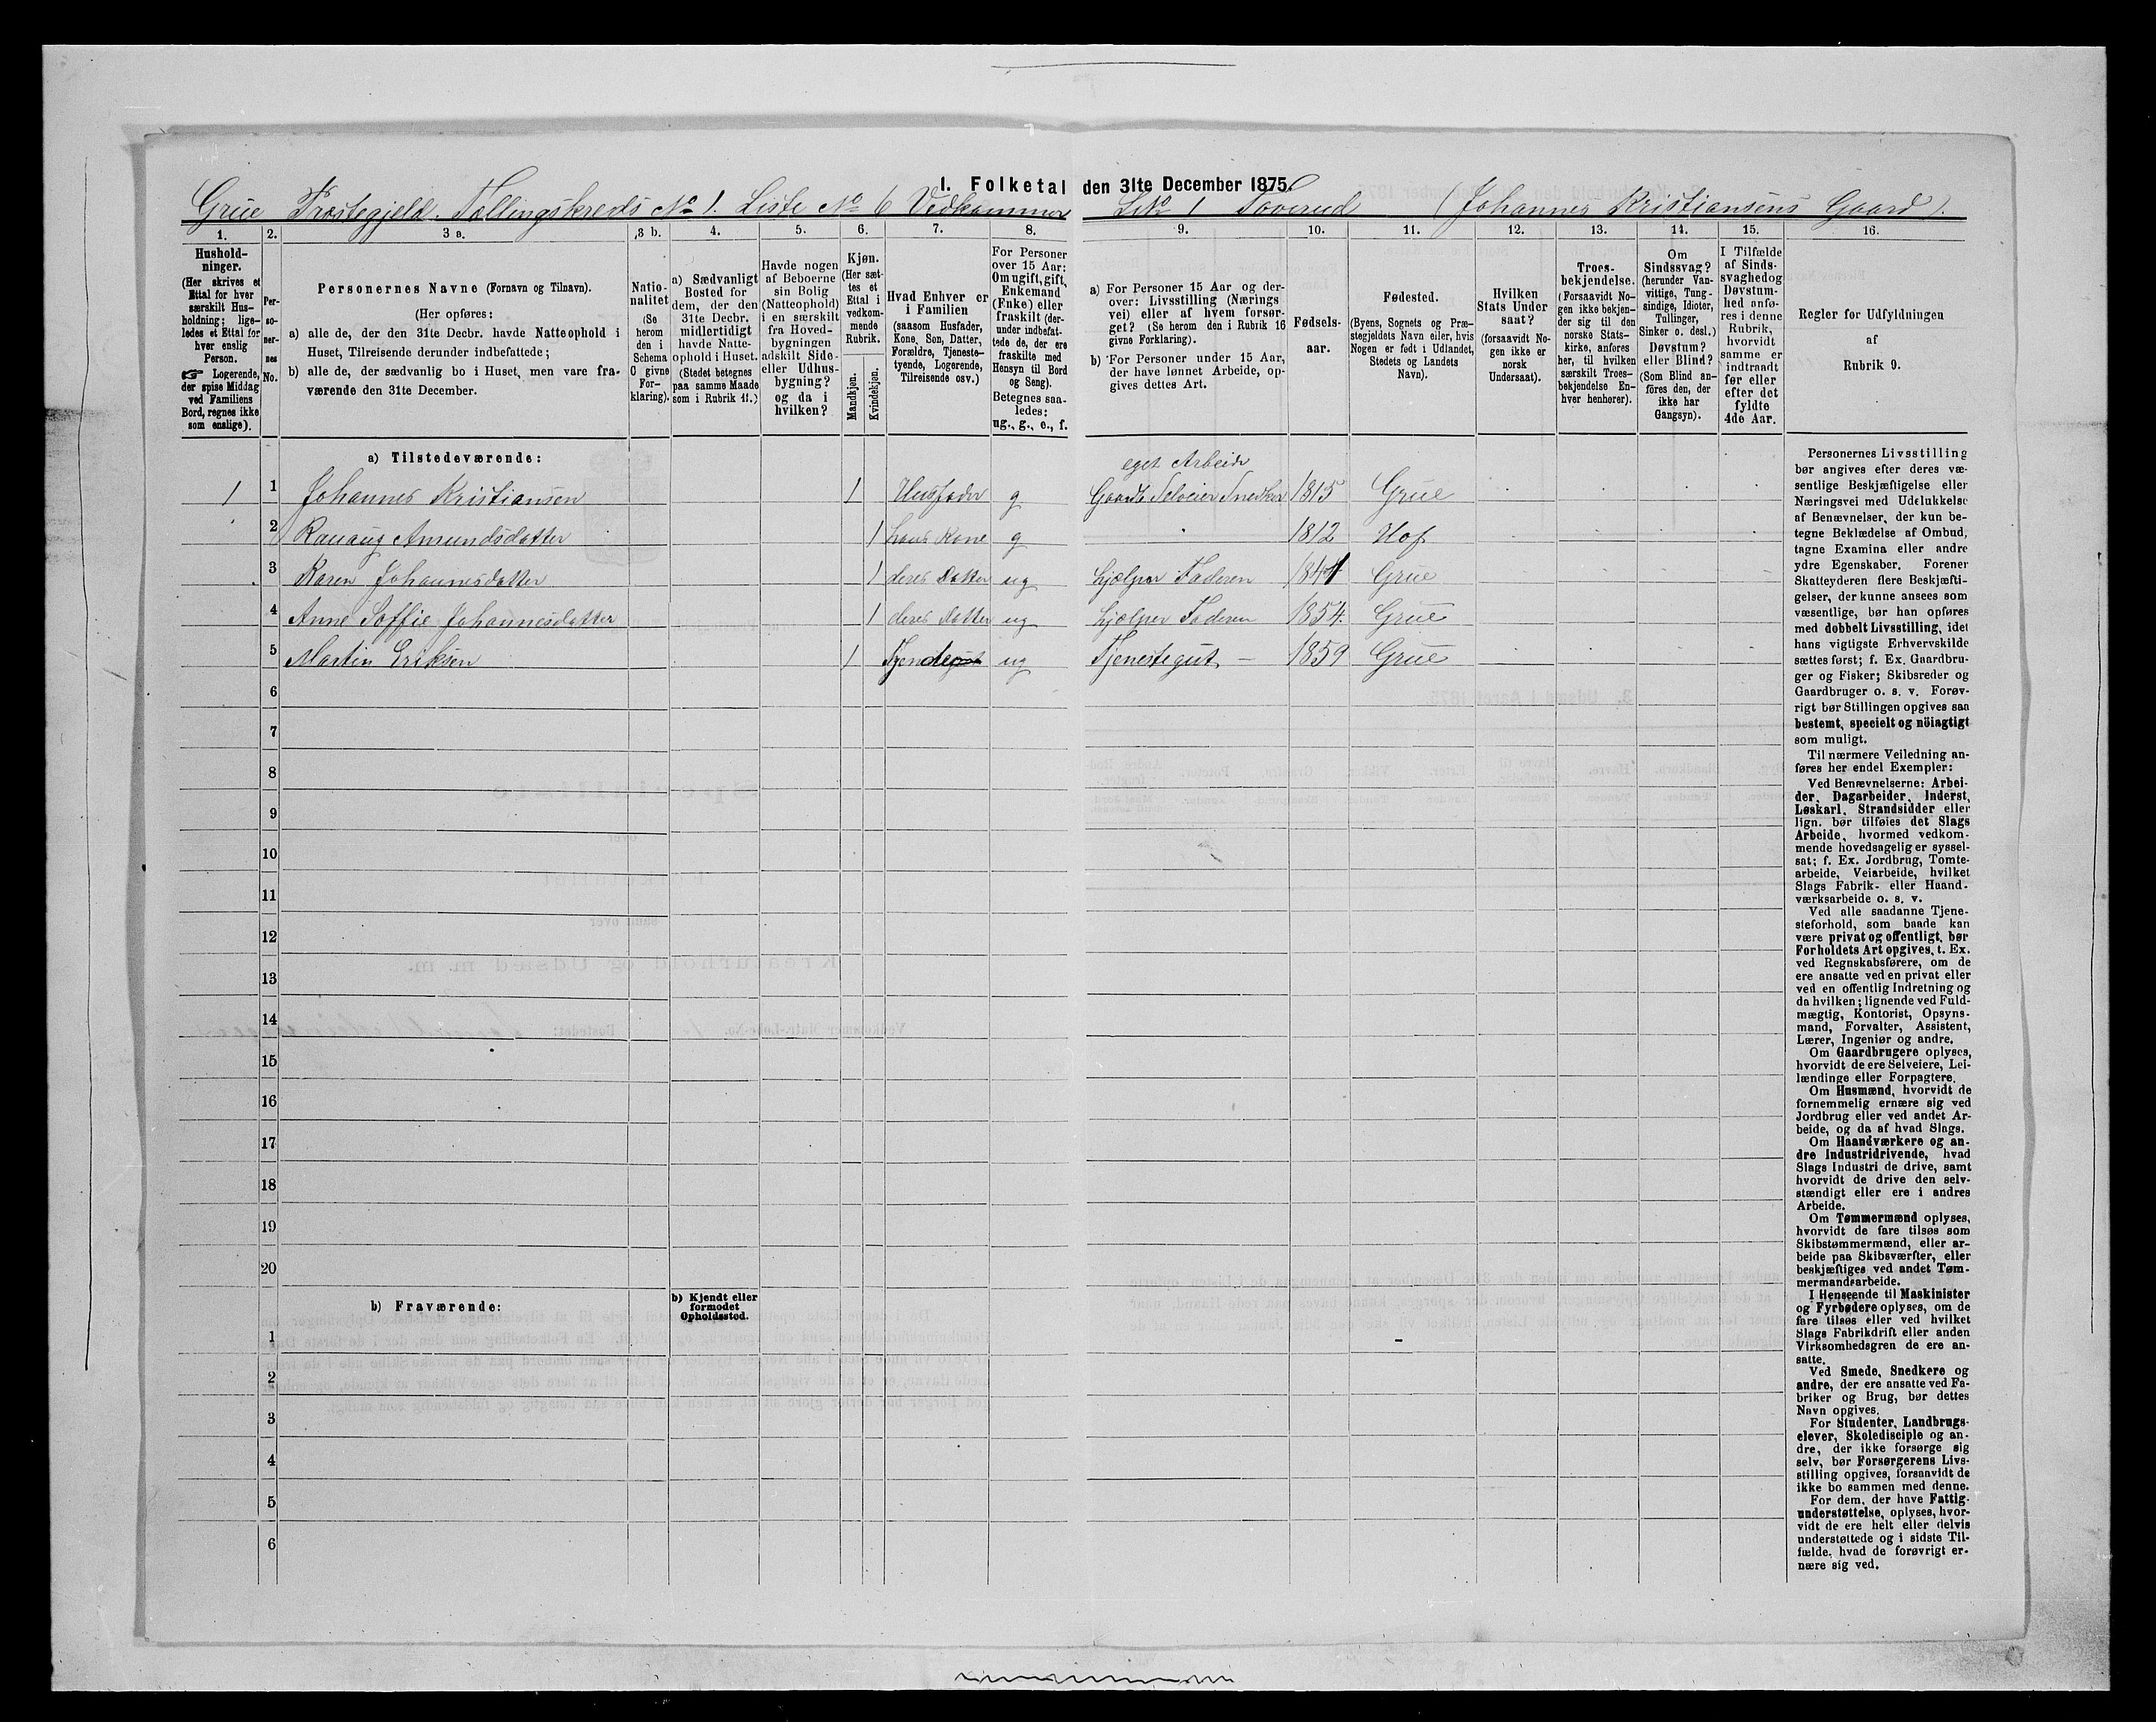 1. Folketal den 31te December 1875.
Grue Præstegjeld. Tællingskreds No 1. Liste No 6 Vedkommer LNo 1 Toverud (Johannes Kristiansens Gaard).
1. 2. 3 a. 3 b. 4. 5. 6. 7. 8. 9. 10. 11. 12. 13. 14. 15. 16.
Hushold-
ninger.
(Her skrives et
Ettal for hver
særskilt Hus-
holdning; lige-
ledes et Ettal for
hver enslig
Person.
☞ Logerende,
der spise Middag
ved Familiens
Bord, regnes ikke
som enslige).
Per-
so-
ner-
nes
No.
Personernes Navne (Fornavn og Tilnavn).
(Her opføres:
a) alle de, der den 31te Decbr. havde Natteophold i
Huset, Tilreisende derunder indbefattede;
b) alle de, der sædvanlig bo i Huset, men vare fra-
værende den 31te December.
Natio-
nalitet
(Se
herom
den i
Schema
O givne
For-
klaring).
a) Sædvanligt
Bosted for
dem, der den
31te Decbr.
midlertidigt
havde Natte-
ophold i Huset.
(Stedet betegnes
paa samme Maade
som i Rubrik 11.)
Havde nogen
af Beboerne
sin Bolig
(Natteophold)
i en særskilt
fra Hoved-
bygningen
adskilt Side-
eller Udhus-
bygning?
og da i
hvilken?
Kjøn.
(Her sæt-
tes et
Ettal i
vedkom-
mende
Rubrik.
Mandkjøn.
Kvindekjøn.
Hvad Enhver er
i Familien
(saasom Husfader,
Kone, Søn, Datter,
Forældre, Tjeneste-
tyende, Logerende,
Tilreisende osv.)
For Personer
over 15 Aar:
Om ugift, gift,
Enkemand
(Enke) eller
fraskilt (der-
under indbefat-
tede de, der ere
fraskilte med
Hensyn til Bord
og Seng).
Betegnes saa-
ledes:
ug., g., e., f.
a) For Personer 15 Aar og der-
over: Livsstilling (Nærings
vei) eller af hvem forsør-
get? (Se herom den i Rubrik 16
givne Forklaring).
b) For Personer under 15 Aar,
der have lønnet Arbeide, op-
gives dettes Art.
Fødsels-
aar.
Fødested.
(Byens, Sognets og Præ-
stegjeldets Navn eller, hvis
Nogen er født i Udlandet,
Stedets og Landets
Navn).
Hvilken
Stats Under
saat?
(forsaavidt No-
gen ikke er
norsk
Undersaat).
Troes-
bekjendelse.
(Forsaavidt No-
gen ikke bekjen-
der sig til den
norske Stats-
kirke, anføres
her, til hvilken
særskilt Troes-
bekjendelse En-
hver henhører).
Om
Sindssvag?
(herunder Van-
vittige, Tung-
sindige, Idioter,
Tullinger,
Sinker o. desl.)
Døvstum?
eller Blind?
(Som Blind an-
føres den, der
ikke har
Gangsyn).
I Tilfælde
af Sinds-
svaghed og
Døvstum-
hed anfø-
res i denne
Rubrik,
hvorvidt
samme er
indtraadt
før eller
efter det
fyldte
4de Aar.
Regler for Udfyldningen
af
Rubrik 9.
a) Tilstedeværende:
eget Arbeide
1 1 Johannes Kristiansen 1 Husfader g Gaardb. Selveier Snedker 1815 Grue
2 Ranaug Amundsdatter 1 hans Kone g 1812 Hof
3 Karen Johannesdatter 1 deres Datter ug hjælper Faderen 1841 Grue
4 Anne Soffie Johannesdatter 1 deres Datter ug hjælper Faderen 1854 Grue
5 Martin Eriksen 1 ug Tjenestegut – 1859 Grue
6
7
8
9
10
11
12
13
14
15
16
17
18
19
20
b) Fraværende:
b) Kjendt eller
formodet
Opholdssted.
1
2
3
4
5
6
Personernes Livsstilling
bør angives efter deres væ-
sentlige Beskjæftigelse eller
Næringsvei med Udelukkelse
af Benævnelser, der kun be-
tegne Beklædelse af Ombud,
tagne Examina eller andre
ydre Egenskaber. Forener
Skatteyderen flere Beskjæfti-
gelser, der kunne ansees som
væsentlige, bør han opføres
med dobbelt Livsstilling, idet
hans vigtigste Erhvervskilde
sættes først; f. Ex. Gaardbru-
ger og Fisker; Skibsreder og
Gaardbruger o. s. v. Forøv-
rigt bør Stillingen opgives saa
bestemt, specielt og nöiagtigt
som muligt.
Til nærmere Veiledning an-
føres her endel Exempler:
Ved Benævnelserne: Arbei-
der, Dagarbeider, Inderst,
Løskarl, Strandsidder eller
lign. bør tilføies det Slags
Arbeide, hvormed vedkom-
mende hovedsagelig er syssel-
sat; f. Ex. Jordbrug, Tomte-
arbeide, Veiarbeide, hvilket
Slags Fabrik- eller Haand-
værksarbeide o. s. v.
Ved alle saadanne Tjene-
steforhold, som baade kan
være privat og offentligt, bør
Forholdets Art opgives, t. Ex.
ved Regnskabsførere, om de
ere ansatte ved en privat eller
ved en offentlig Indretning og
da hvilken; lignende ved Fuld-
mægtig, Kontorist, Opsyns-
mand, Forvalter, Assistent,
Lærer, Ingeniør og andre.
Om Gaardbrugere oplyses,
hvorvidt de ere Selveiere, Lei-
lændinge eller Forpagtere.
Om Husmænd, hvorvidt de
fornemmelig ernære sig ved
Jordbrug eller ved andet Ar-
beide, og da af hvad Slags.
Om Haandværkere og an-
dre Industridrivende, hvad
Slags Industri de drive, samt
hvorvidt de drive den selv-
stændigt eller ere i andres
Arbeide.
Om Tømmermænd oplyses,
hvorvidt de fare tilsøs som
Skibstømmermænd, eller ar-
beide paa Skibsværfter, eller
beskjæftiges ved andet Tøm-
mermandsarbeide.
I Henseende til Maskinister
og Fyrbødere oplyses, om de
fare tilsøs eller ved hvilket
Slags Fabrikdrift eller anden
Virksomhedsgren de ere an-
satte.
Ved Smede, Snedkere og
andre, der ere ansatte ved Fa-
briker og Brug, bør dettes
Navn opgives.
For Studenter, Landbrugs-
elever, Skoledisciple og an-
dre, der ikke forsørge sig
selv, bør Forsørgerens Livs-
stilling opgives, forsaavidt de
ikke bo sammen med denne.
For dem, der have Fattig-
understøttelse, oplyses, hvor-
vidt de ere helt eller delvis
understøttede og i sidste Til-
fælde, hvad de forøvrigt er-
nære sig ved.